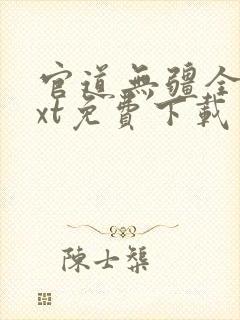 官道無疆全
xt免費下載
陳士榘